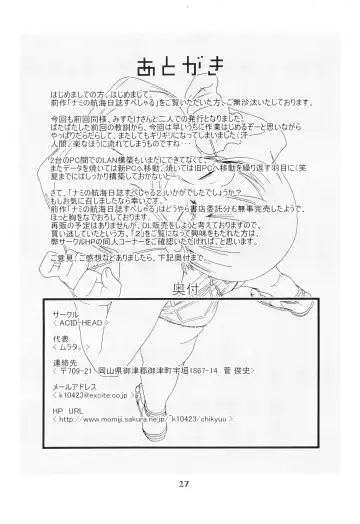 あとがき
はじめましての方、はじめまして。
前作「ナミの航海日誌すぺしゃる」をご覧いただいた方、ご無沙汰いたしております。
今回も前回同様、みすたけさんと二人での発行となりました。
ばたばたした前回の教訓から、今回は早いうちに作業はじめるぞーと思いながら
やっぱりだらだらして、またもギリギリになってしまいました（汗―
人間、楽なほうに流れてしまうものですね・・・
2台のPC間でのLAN構築もいまだにできてなくて、
またデータを焼いては新PCへ移動、焼いては旧PCへ移動を繰り返す羽目に（笑
夏までにはしっかり構築しておかないと・・・
さて、「ナミの航海日誌すぺしゃる2」いかがでしたでしょうか？
もしお気に召しましたなら幸いです。
前作「ナミの航海日誌すぺしゃる」はどうやら書店委託分も無事完売したようで、
ほっと胸をなでおろしております。
再販の予定はありませんが、DL販売をしておりますので、
買い逃していたという方、「2」をご覧になって興味をもたれた方は、
弊サークルHPの同人コーナーをご確認いただければ、と思います。
ご意見、ご感想などありましたら、下記奥付まで。
奥付
サークル
< ACID-HEAD>
代表
< ムラタ。>
連絡先
< 〒709-21 岡山県御津郡御津町宇垣1867-14 菅 俊史>
メールアドレス
< k10423@excite.co.jp>
HP URL
< http://www.momiji.sakura.ne.jp/chikyuu>
27